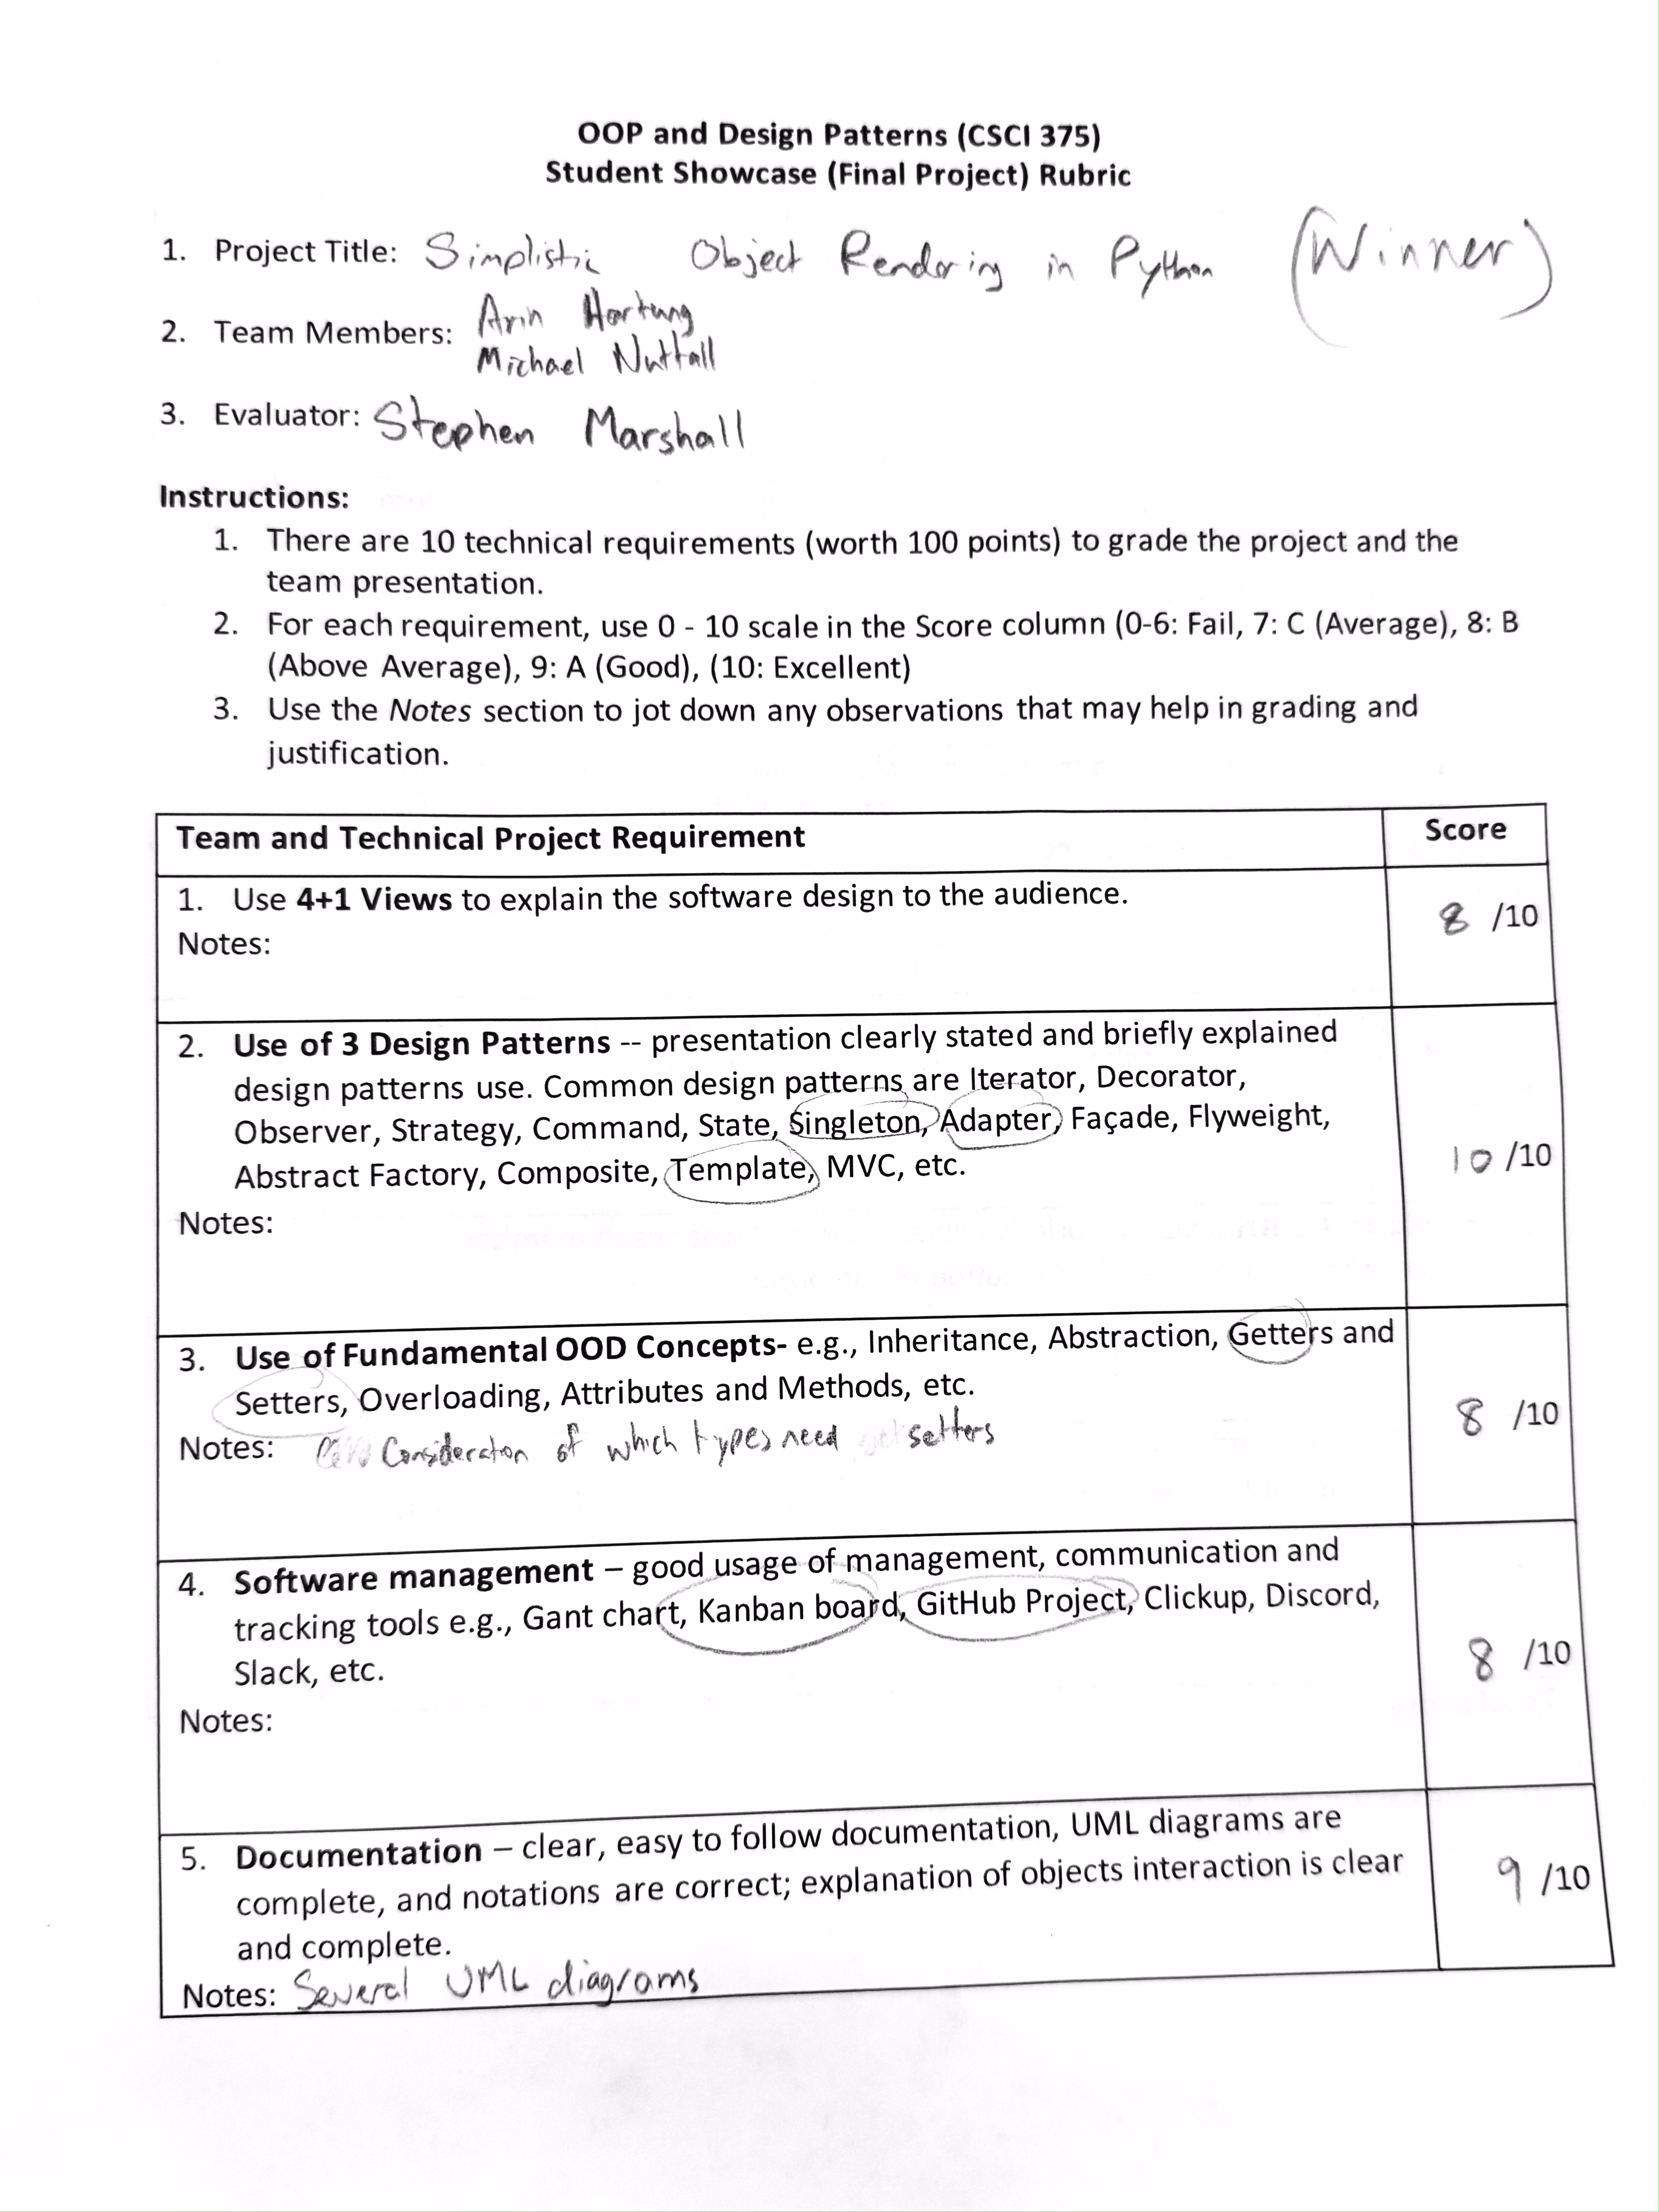 OOP and Design Patterns (CSCI 375)
Student Showcase (Final Project) Rubric
1. Project Title: Simplistic Object Rendering in Python (Winner)
2. Team Members: Arin Hartung
Michael Nuttall
3. Evaluator: Stephen Marshall
Instructions:
1. There are 10 technical requirements (worth 100 points) to grade the project and the
team presentation.
2. For each requirement, use 0 - 10 scale in the Score column (0-6: Fail, 7: C (Average), 8: B
(Above Average), 9: A (Good), (10: Excellent)
3. Use the Notes section to jot down any observations that may help in grading and
justification.
Team and Technical Project Requirement Score
1. Use 4+1 Views to explain the software design to the audience.
8 /10
Notes:
2. Use of 3 Design Patterns -- presentation clearly stated and briefly explained
design patterns use. Common design patterns are Iterator, Decorator,
Observer, Strategy, Command, State, Singleton, Adapter, Façade, Flyweight,
Abstract Factory, Composite, Template, MVC, etc.
10 /10
Notes:
3. Use of Fundamental OOD Concepts- e.g., Inheritance, Abstraction, Getters and
Setters, Overloading, Attributes and Methods, etc.
8 /10
Notes: Consideration of which types need setters
4. Software management – good usage of management, communication and
tracking tools e.g., Gant chart, Kanban board, GitHub Project, Clickup, Discord,
Slack, etc.
8 /10
Notes:
5. Documentation – clear, easy to follow documentation, UML diagrams are
complete, and notations are correct; explanation of objects interaction is clear
and complete.
9 /10
Notes: Several UML diagrams